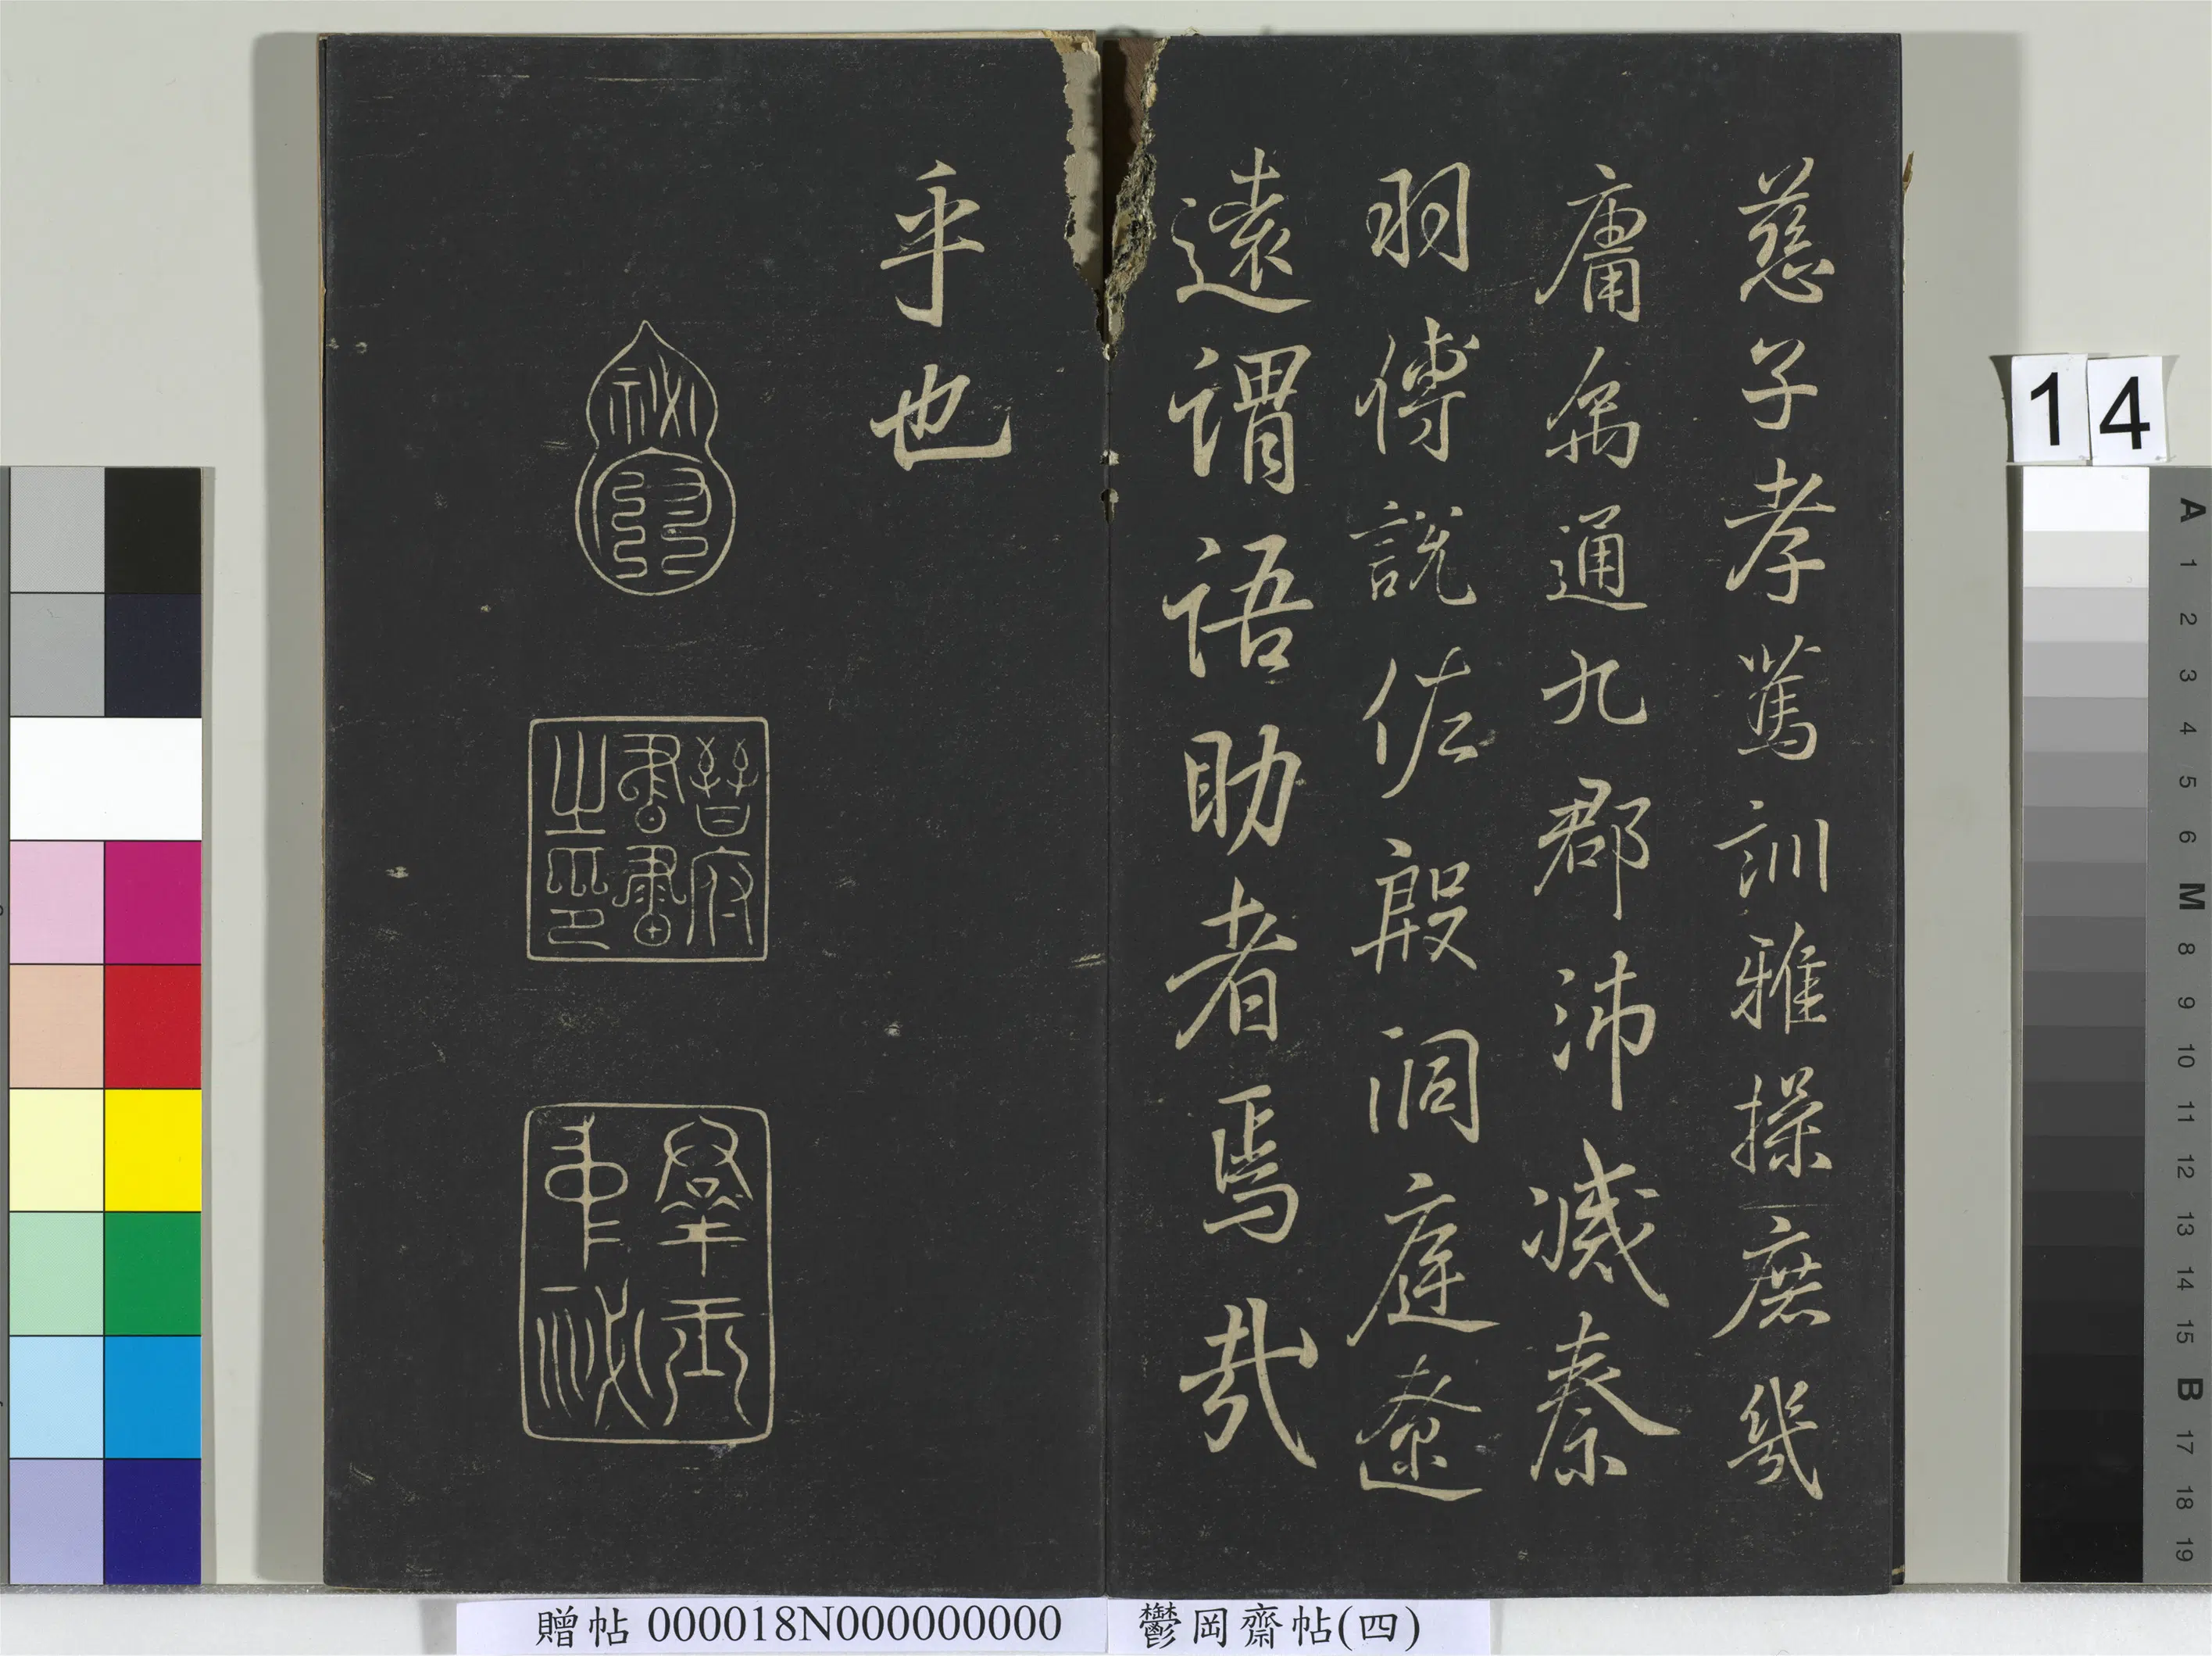 慈子孝篤訓雅操庶幾
庸禹通九郡沛滅秦
羽傅說佐殷洞庭遼
遠謂語助者焉哉
乎也
晉府書畫之印
羣玉中秘
14
A 1 2 3 4 5 6 M 8 9 10 11 12 13 14 15 B 17 18 19
贈帖 000018N000000000
鬱岡齋帖(四)